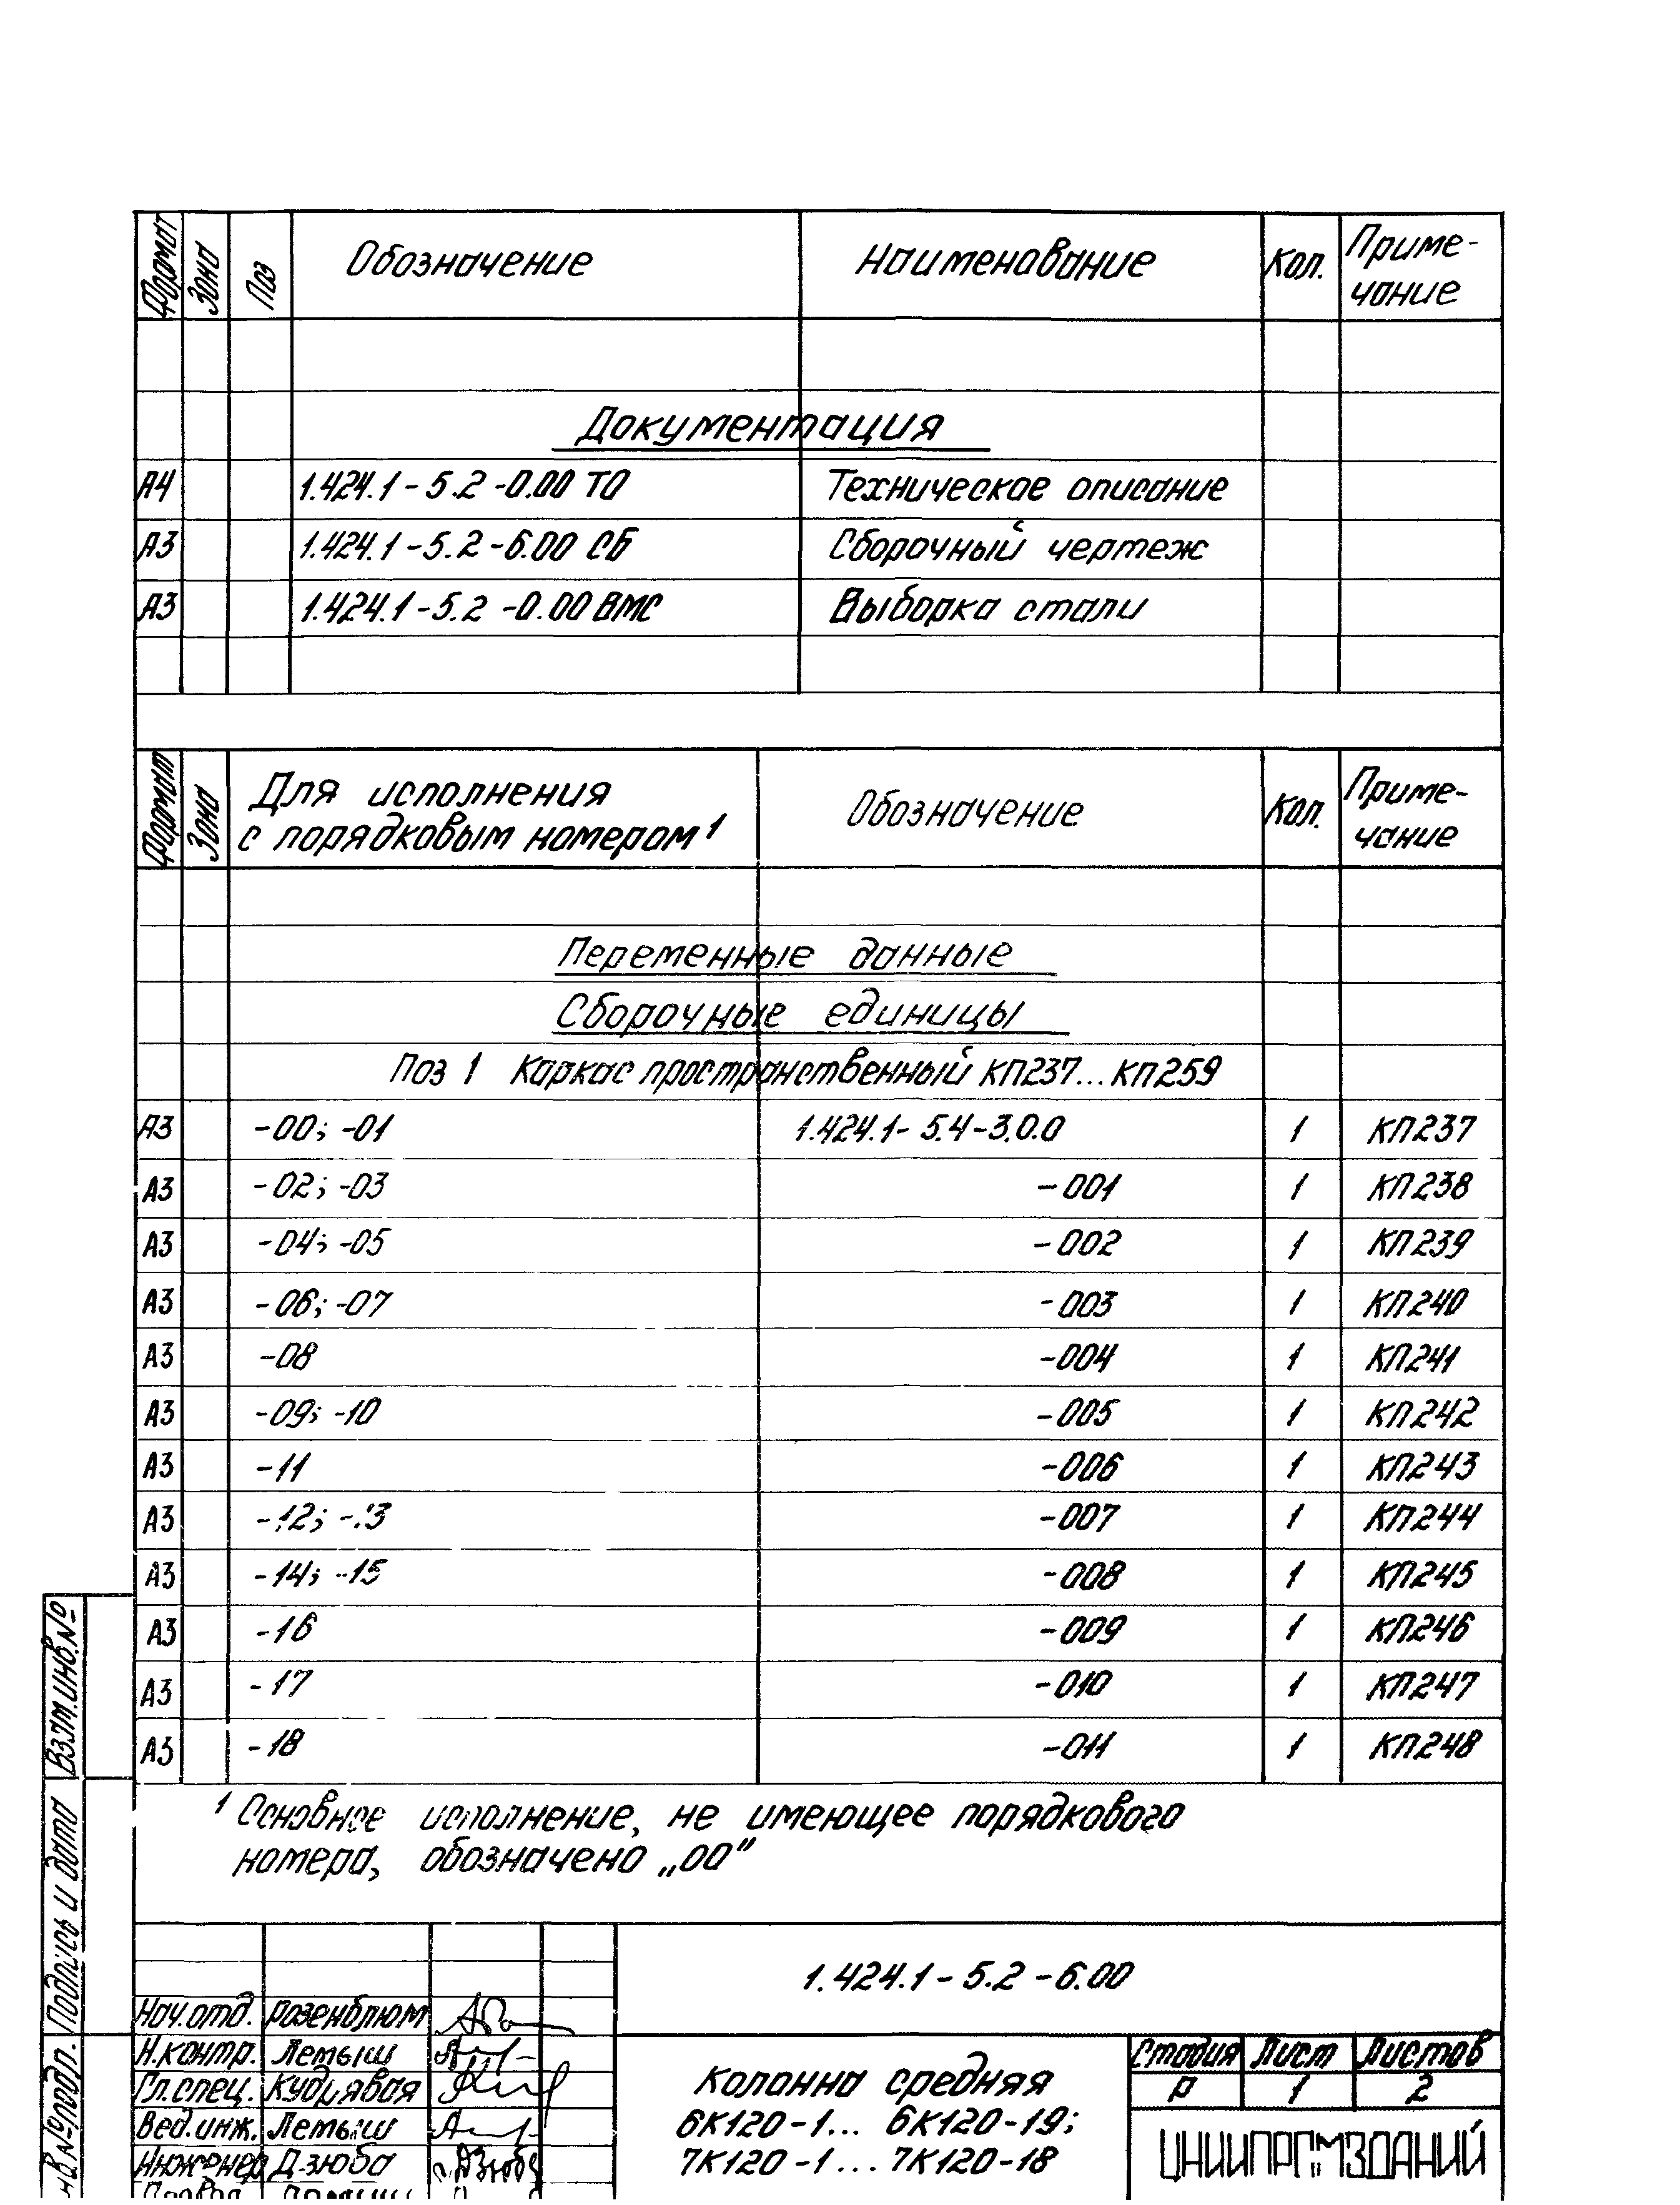 Формат Зона Поз Обозначение Наименование Кол. Приме-
чание
Документация
А4 1.424.1-5.2-0.00 ТО Техническое описание
А3 1.424.1-5.2-6.00 СБ Сборочный чертеж
А3 1.424.1-5.2-0.00 ВМС Выборка стали
Формат Зона Для исполнения Обозначение Кол. Приме-
с порядковым номером¹ чание
Переменные данные
Сборочные единицы
Поз 1 Каркас пространственный КП237...КП259
А3 -00; -01 1.424.1-5.4-3.0.0 1 КП237
А3 -02; -03 -001 1 КП238
А3 -04; -05 -002 1 КП239
А3 -06; -07 -003 1 КП240
А3 -08 -004 1 КП241
А3 -09; -10 -005 1 КП242
А3 -11 -006 1 КП243
А3 -12; -13 -007 1 КП244
А3 -14; -15 -008 1 КП245
А3 -16 -009 1 КП246
А3 -17 -010 1 КП247
А3 -18 -011 1 КП248
¹ Основное исполнение, не имеющее порядкового
номера, обозначено „00"
Взам.инв.№
Подпись и дата
1.424.1-5.2-6.00
Нач.отд. Розенблюм
Н.контр. Лемыш
Гл.спец. Кудрявая
Вед.инж. Лемыш
Инженер Дзюба Дзюба
Колонна средняя
6К120-1... 6К120-19;
7К120-1... 7К120-18
Стадия Лист Листов
Р 1 2
ЦНИИПРОМЗДАНИЙ